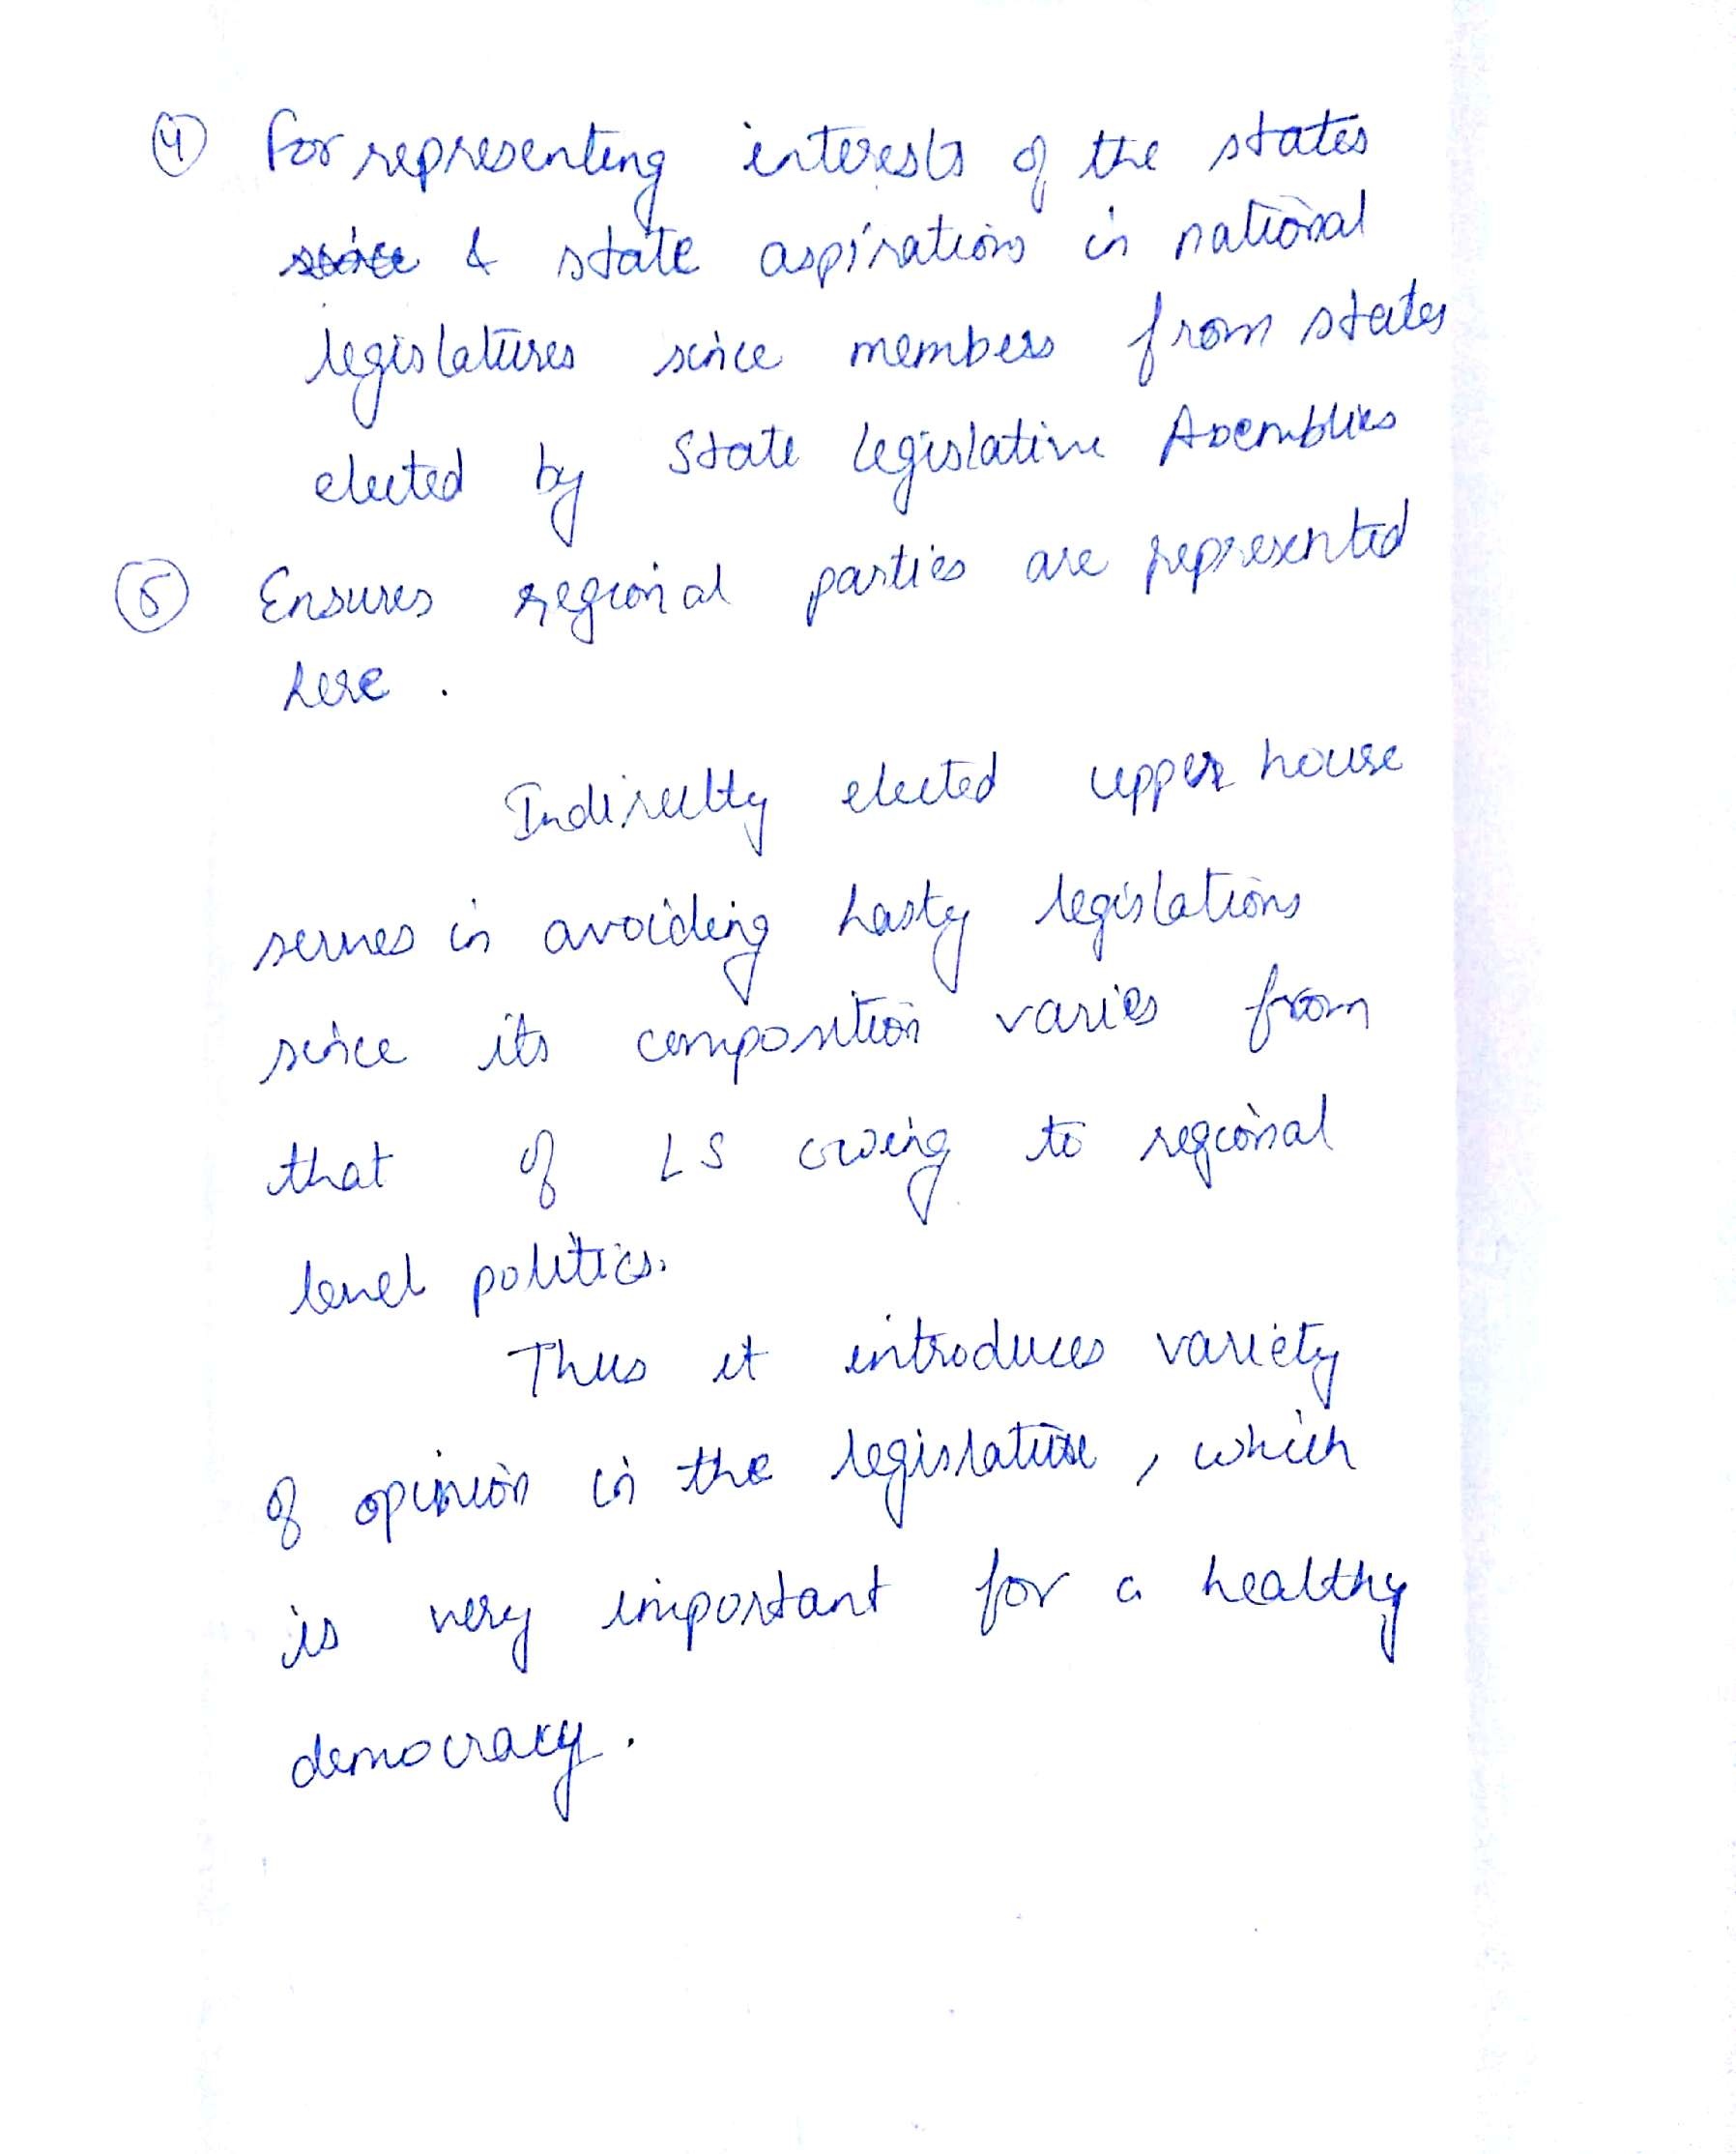 ④ For representing interests of the states
since & state aspirations in national
legislatures since members from states
elected by State Legislative Assemblies
⑤ Ensures regional parties are represented
here .
Indirectly elected upper house
serves in avoiding hasty legislations
since its composition varies from
that of LS owing to regional
level politics.
Thus it introduces variety
of opinion in the legislature , which
is very important for a healthy
democracy .